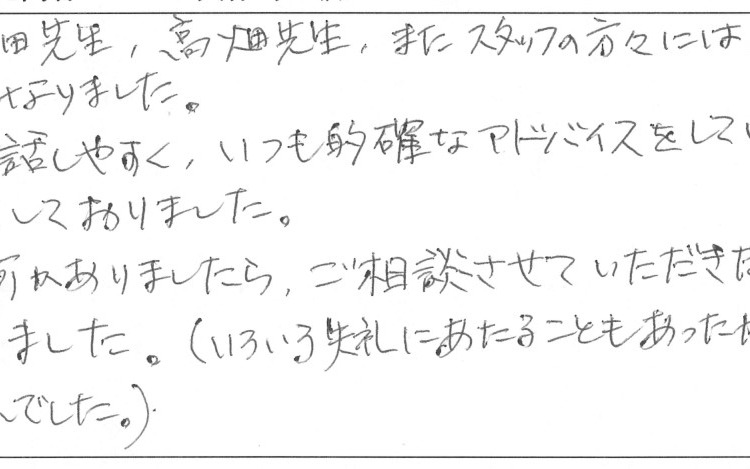 田先生,高畑先生,またスタッフの方々には
なりました。
話しやすく,いつも的確なアドバイスをして
しておりました。
何かありましたら,ご相談させていただきた
ました。(いろいろ失礼にあたることもあった
んでした。)